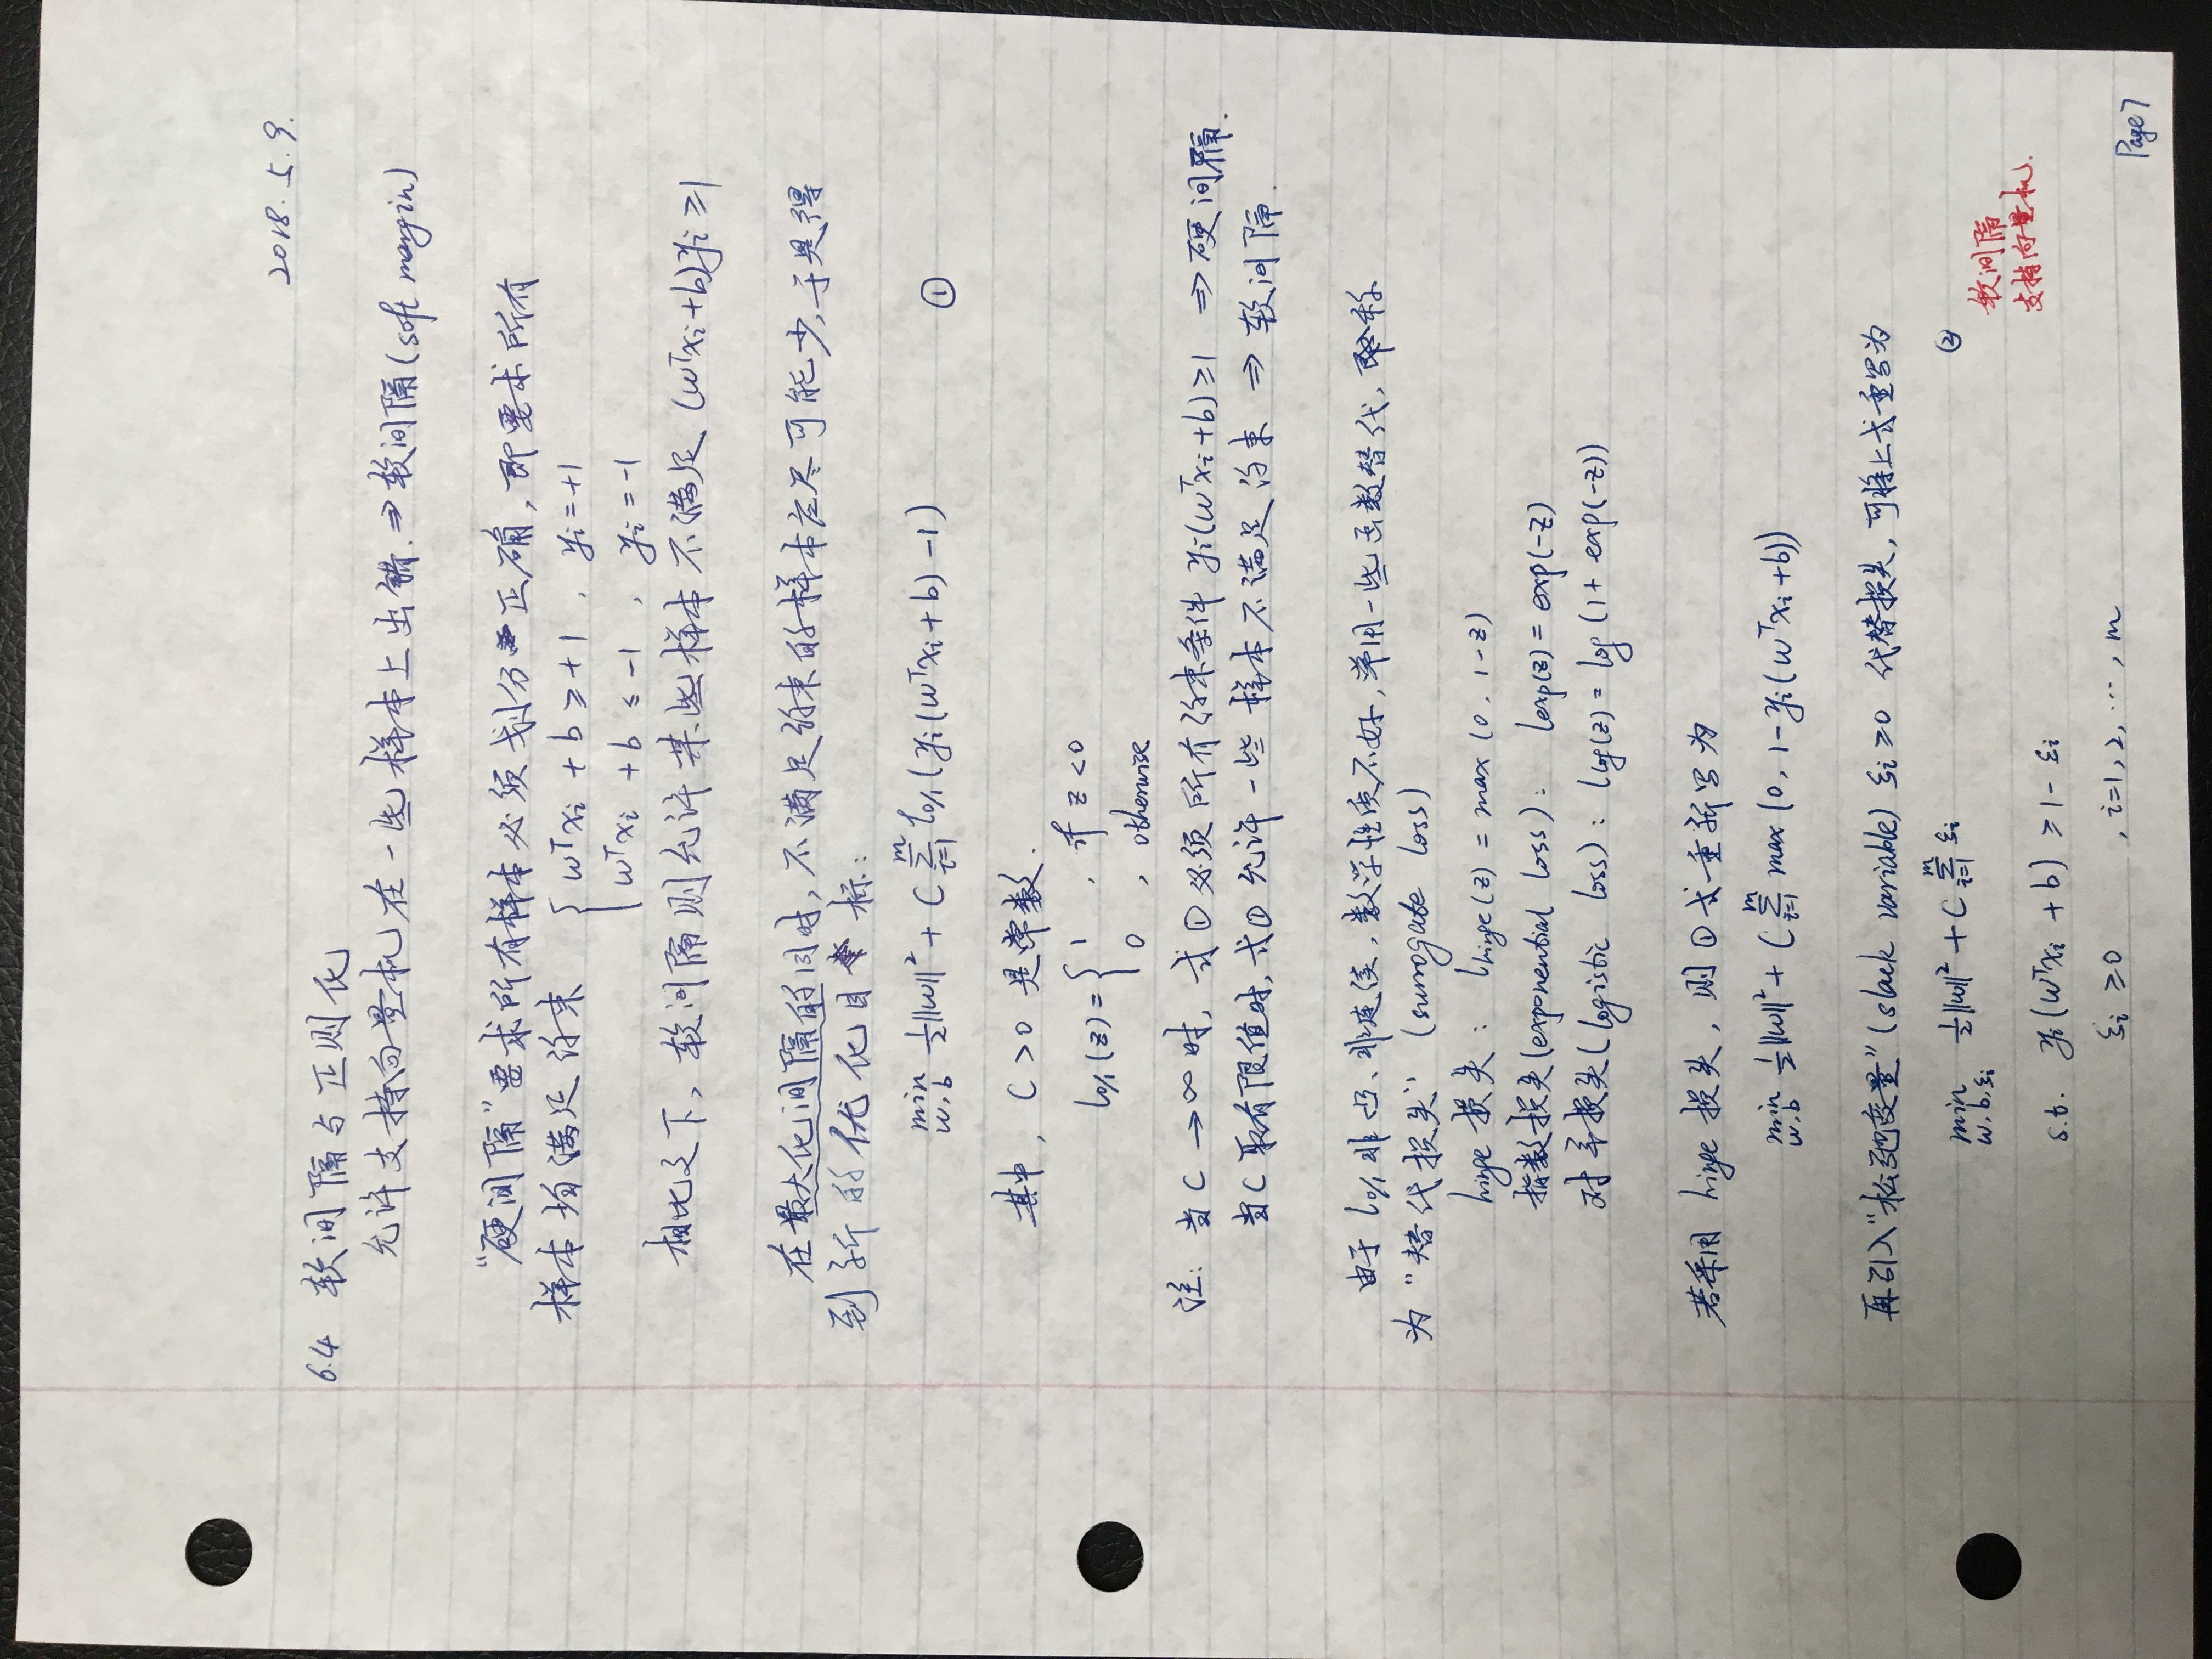 2018.5.9.
6.4 软间隔与正则化
允许支持向量机在一些样本上出错.⇒软间隔(soft margin)
“硬间隔”要求所有样本必须划分正确,即要求所有
样本均满足约束 { wᵀxᵢ + b ≥ +1 , yᵢ = +1
wᵀxᵢ + b ≤ -1 , yᵢ = -1
相比之下,软间隔则允许某些样本不满足 (wᵀxᵢ+b)yᵢ ≥ 1
在最大化间隔的同时,不满足约束的样本应尽可能少,于是得
到新的优化目标:
min_{w,b} ½||w||² + C Σ_{i=1}^{m} l₀/₁(yᵢ(wᵀxᵢ+b) -1) ①
其中, C>0 是常数.
l₀/₁(z) = { 1 , if z<0
0 , otherwise
注: 当C→∞时, 式①必须所有约束条件 yᵢ(wᵀxᵢ+b)≥1 ⇒硬间隔.
当C取有限值时,式①允许一些样本不满足约束 ⇒ 软间隔.
由于 l₀/₁ 非凸、非连续,数学性质不好,常用一些函数替代, 称
为“替代损失” (surrogate loss)
hinge 损失: l_hinge(z) = max (0, 1-z)
指数损失(exponential loss): l_exp(z) = exp(-z)
对率损失(logistic loss): l_log(z) = log (1+ exp(-z))
若采用 hinge 损失, 则①式重新写为
min_{w,b} ½||w||² + C Σ_{i=1}^{m} max (0, 1-yᵢ(wᵀxᵢ+b))
再引入“松弛变量”(slack variable) ξᵢ≥0 代替损失,可将上式重写为
min_{w,b,ξᵢ} ½||w||² + C Σ_{i=1}^{m} ξᵢ ②
软间隔
支持向量机.
s.t. yᵢ(wᵀxᵢ + b) ≥ 1- ξᵢ
ξᵢ ≥0 , i=1,2,…,m
Page 7